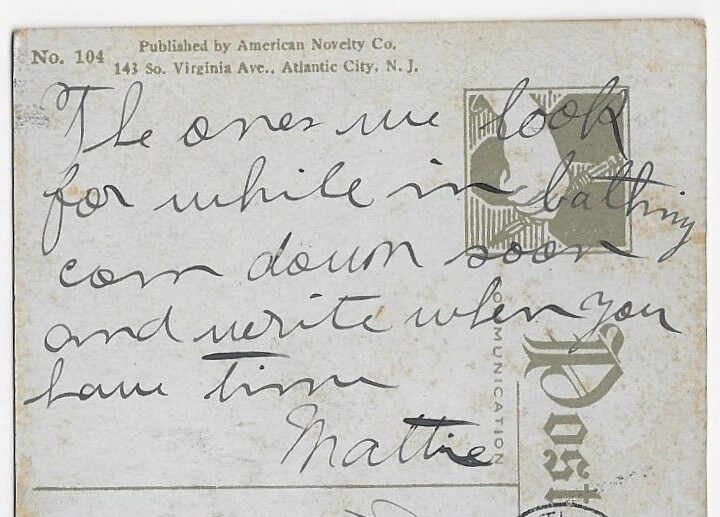 No. 104
Published by American Novelty Co.
143 So. Virginia Ave., Atlantic City, N. J.
The ones we look
for while in bathing
com down soon
and write when you
have time
Mattie
COMMUNICATION
Post